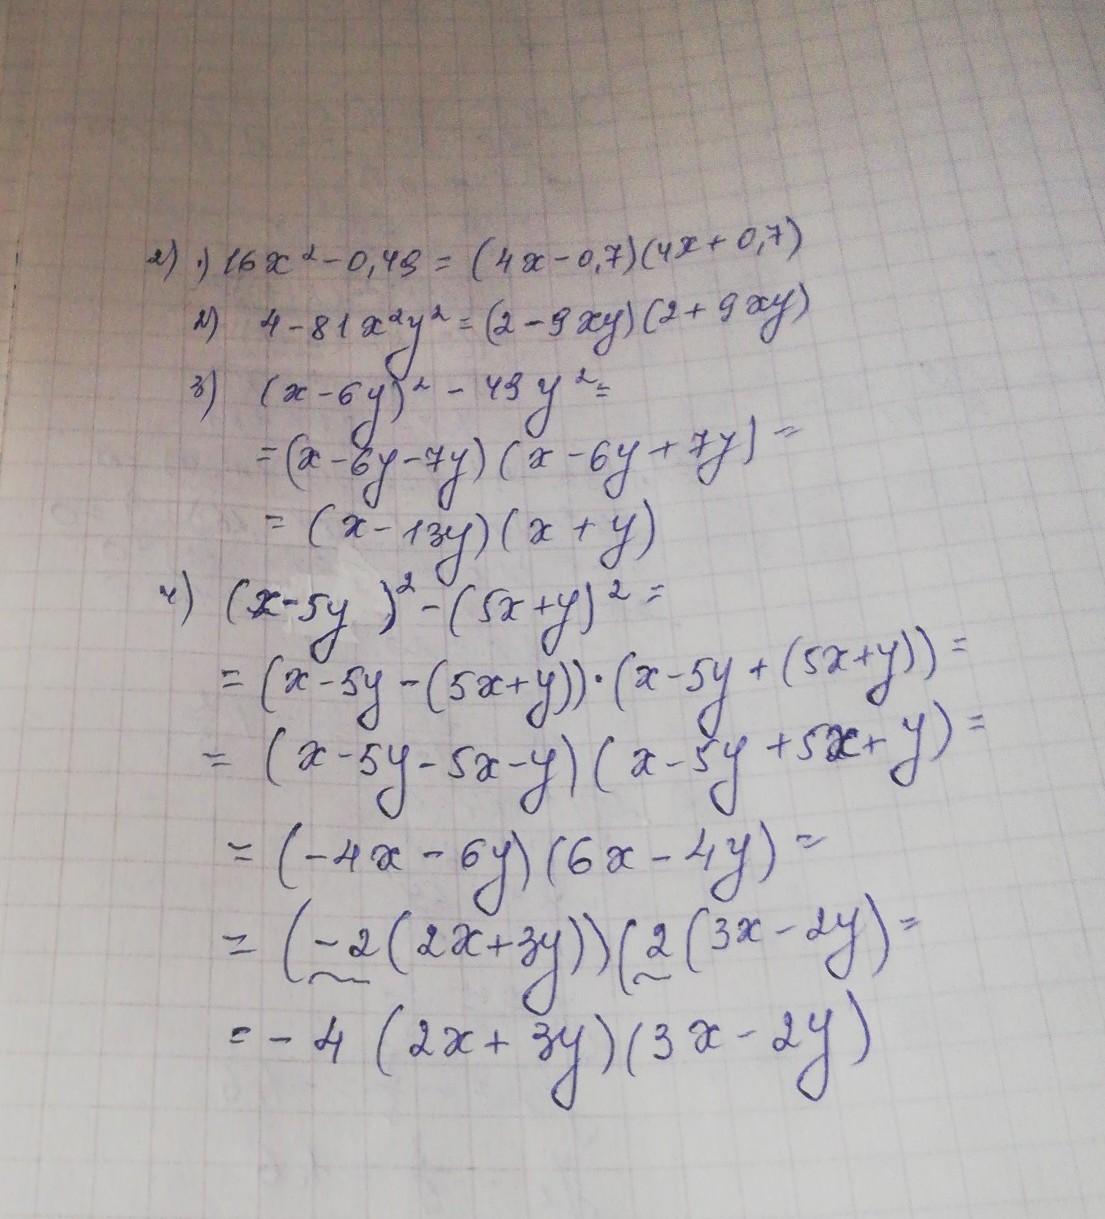 2) 1) 16x² - 0,49 = (4x - 0,7)(4x + 0,7)
2) 4 - 81x²y² = (2 - 9xy)(2 + 9xy)
3) (x - 6y)² - 49y² =
= (x - 6y - 7y)(x - 6y + 7y) =
= (x - 13y)(x + y)
4) (x - 5y)² - (5x + y)² =
= (x - 5y - (5x + y)) · (x - 5y + (5x + y)) =
= (x - 5y - 5x - y)(x - 5y + 5x + y) =
= (-4x - 6y)(6x - 4y) =
= (-2(2x + 3y))(2(3x - 2y) =
= -4(2x + 3y)(3x - 2y)